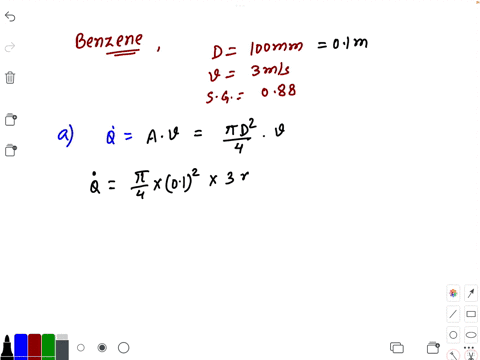 Benzene, D = 100mm = 0.1m
v = 3m/s
S.G. = 0.88
a) Q̇ = A·v = πD²/4 · v
Q̇ = π/4 × (0.1)² × 3